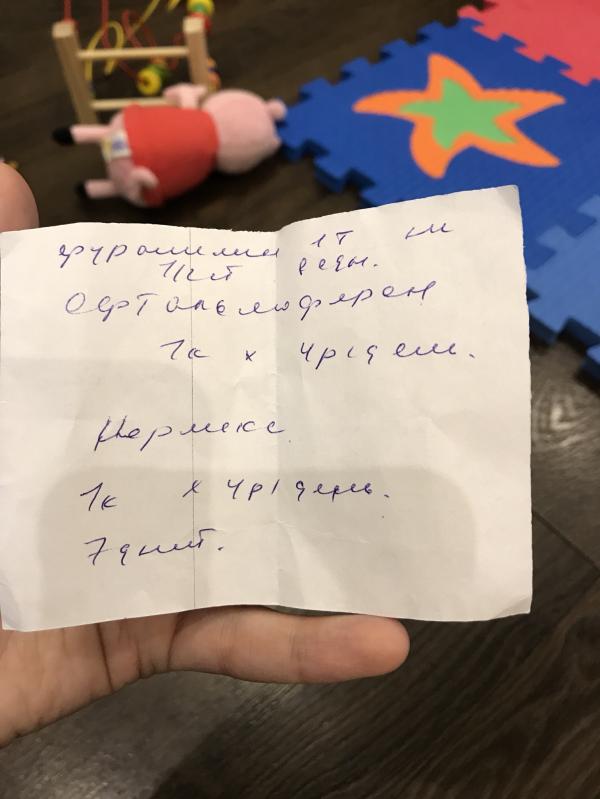 фурацилин 1т на
1/2 ст воды.
Офтальмоферон
1к х 4р/день.
1к х 4р/день.
7дней.